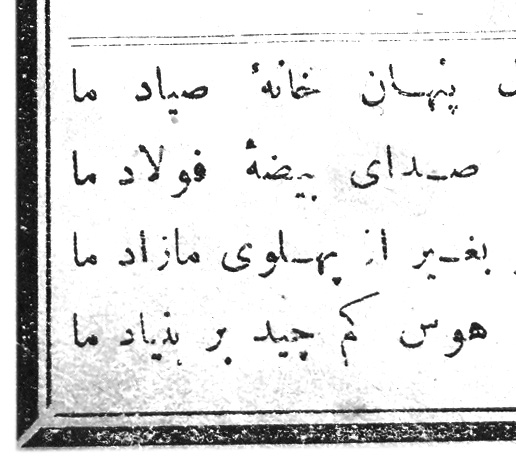 پنهان خانهٔ صیاد ما
صدای بیضهٔ فولاد ما
بغیر از پهلوی مازاد ما
هوس کم چید بر بنیاد ما